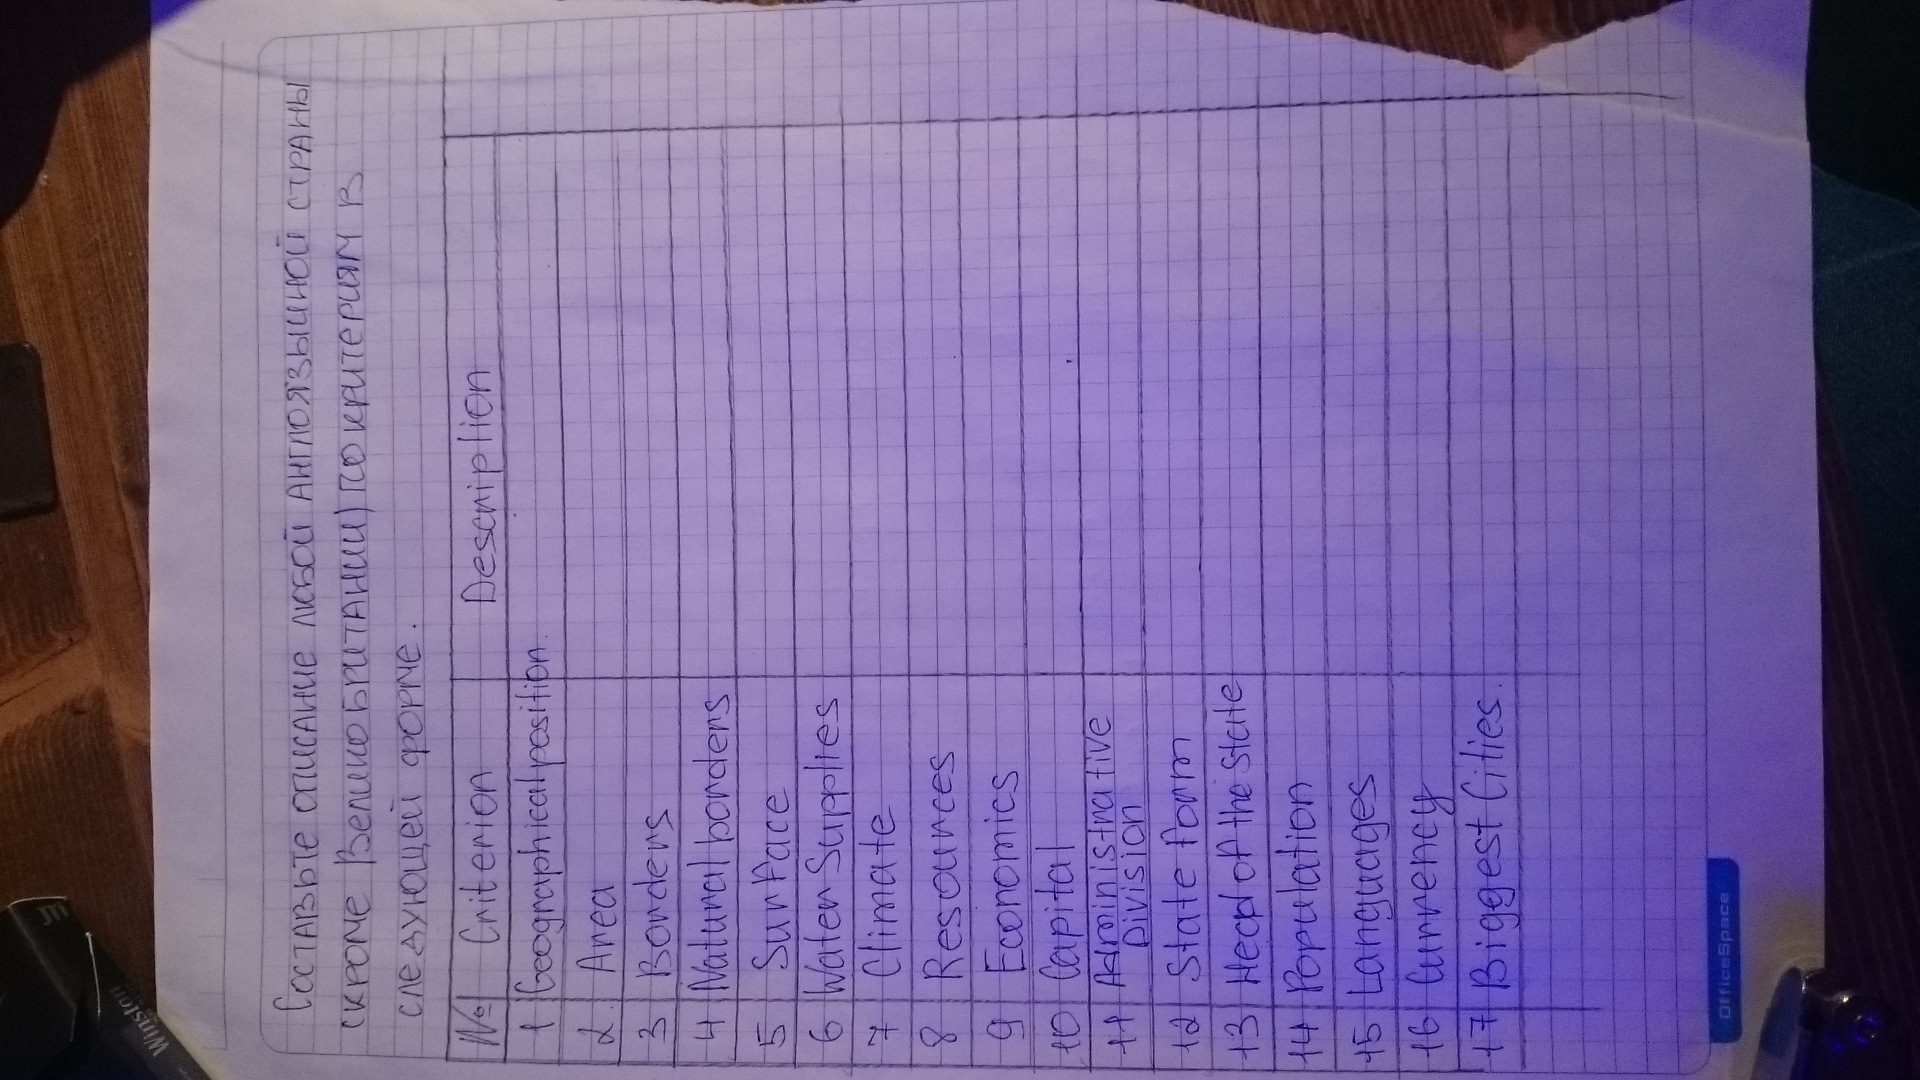 Составьте описание любой англоязычной страны
(кроме Великобритании) по критериям в
следующей форме.
№ Criterion Description
1 Geographical position.
2. Area
3 Borders
4 Natural borders
5 Surface
6 Water Supplies
7 Climate
8 Resources
9 Economics
10 Capital
11 Administrative
Division
12 State form
13 Head of the state
14 Population
15 Languages
16 Currency
17 Biggest Cities.
OfficeSpace
Winston